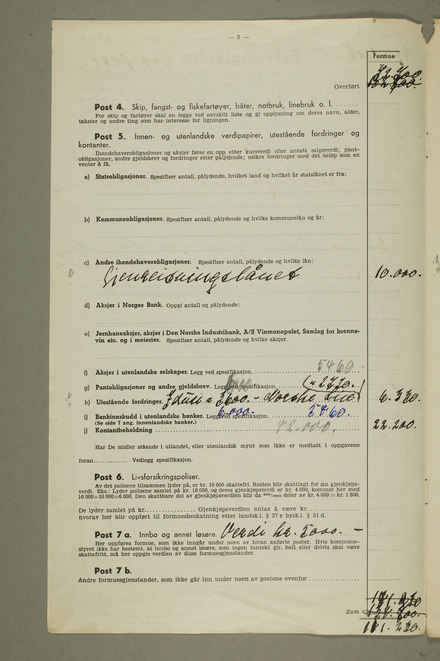 — 2 —
Formue
Overført
Post 4. Skip, fangst- og fiskefartøyer, båter, notbruk, linebruk o. l.
For skip og fartøyer skal en legge ved særskilt liste og gi opplysning om deres navn, alder,
takster og andre ting som har interesse for ligningen.
Post 5. Innen- og utenlandske verdipapirer, utestående fordringer og
kontanter.
Ihendehaverobligasjoner og aksjer føres en opp etter kursverdi eller antatt salgsverdi; pant-
obligasjoner, andre gjeldsbrev og fordringer etter pålydende; usikre fordringer med det beløp som en
venter å få.
a) Statsobligasjoner. Spesifiser antall, pålydende, hvilket land og hvilket år statslånet er fra:
b) Kommuneobligasjoner. Spesifiser antall, pålydende og hvilke kommunelån og år:
c) Andre ihendehaverobligasjoner. Spesifiser antall, pålydende og hvilke lån:
Gjenreisningslånet 10.000.
d) Aksjer i Norges Bank. Oppgi antall og pålydende:
e) Jernbaneaksjer, aksjer i Den Norske Industribank, A/S Vinmonopolet, Samlag for brenne-
vin etc. og i meierier. Spesifiser antall, pålydende og hvilke aksjer.
f) Aksjer i utenlandske selskaper. Legg ved spesifikasjon. 5460.
g) Pantobligasjoner og andre gjeldsbrev. Legg ved spesifikasjon.
h) Utestående fordringer.
i) Bankinnskudd i utenlandske banker. Legg ved spesifikasjon. 6.000. 5460.
(Se side 7 ang. innenlandske banker.)
j) Kontantbeholdning 22.200
Har De midler stående i utlandet, eller utenlandsk mynt som ikke er medtatt i oppgavene
foran. Vedlegg spesifikasjon.
Post 6. Livsforsikringspoliser.
Av det polisene tilsammen lyder på, er kr. 10 000 skattefri. Resten blir skattlagt for sin gjenkjøps-
verdi. Eks.: Lyder polisene samlet på kr. 16 000, og deres gjenkjøpsverdi er kr. 4 000, kommer her med
De lyder samlet på kr. Gjenkjøpsverdien antas å være kr.
hvorav her blir oppført til formuesbeskatning etter landskl. § 37 e byskl. § 31 d.
Post 7 a. Innbo og annet løsøre. Verdi kr. 5000. —
Her oppføres formue, som ikke inngår under noen av foran anførte poster. Hvis kommune-
styret ikke har bestemt, at innbo og annet løsøre, som ingen inntekt gir, helt eller delvis skal være
skattefritt, må her oppgis verdien av disse formuesgjenstander.
Post 7 b.
Andre formuesgjenstander, som ikke går inn under noen av postene ovenfor
Sum